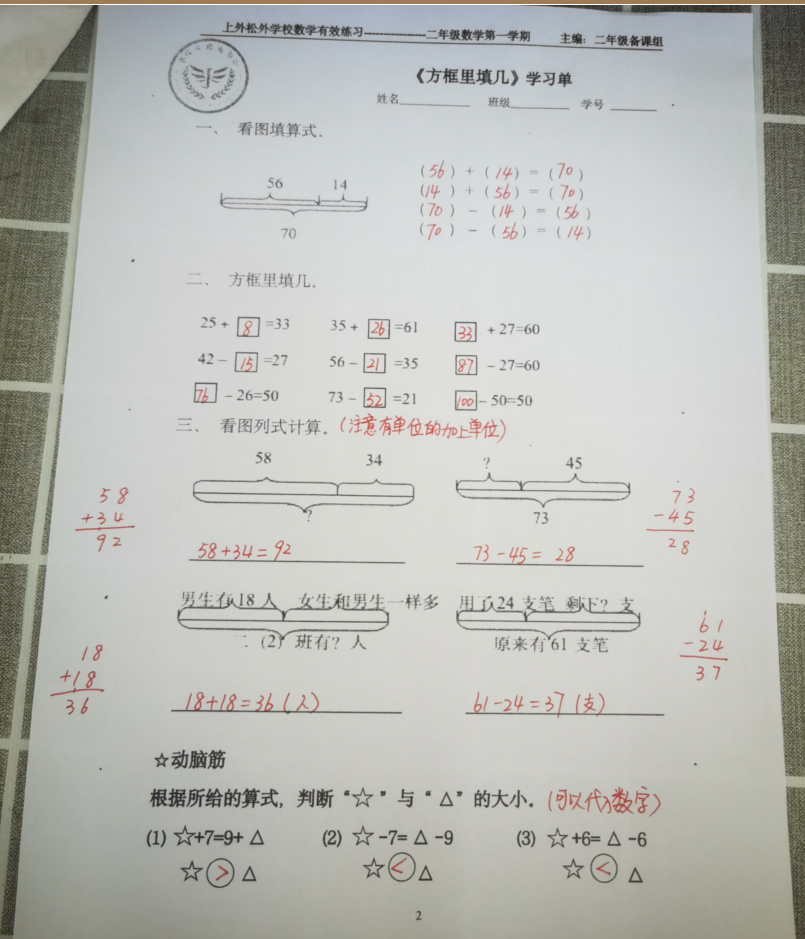 上外松外学校数学有效练习----------------二年级数学第一学期 主编：二年级备课组
《方框里填几》学习单
姓名__________ 班级__________ 学号________
一、 看图填算式.
56 14
70
(56) + (14) = (70)
(14) + (56) = (70)
(70) - (14) = (56)
(70) - (56) = (14)
二、 方框里填几.
25 + 8 =33 35 + 26 =61 33 + 27=60
42 - 15 =27 56 - 21 =35 87 - 27=60
76 - 26=50 73 - 52 =21 100 - 50=50
三、 看图列式计算. (注意有单位的加上单位)
58 34
?
? 45
73
58
+34
92
58+34=92
73-45= 28
73
-45
28
男生有18人 女生和男生一样多
二 (2) 班有? 人
用了24 支笔 剩下? 支
原来有61 支笔
18
+18
36
18+18=36(人)
61-24=37(支)
61
-24
37
☆动脑筋
根据所给的算式，判断“☆”与“△”的大小. (可以代入数字)
(1) ☆+7=9+ △ (2) ☆ -7= △ -9 (3) ☆ +6= △ -6
☆ > △ ☆ < △ ☆ < △
2